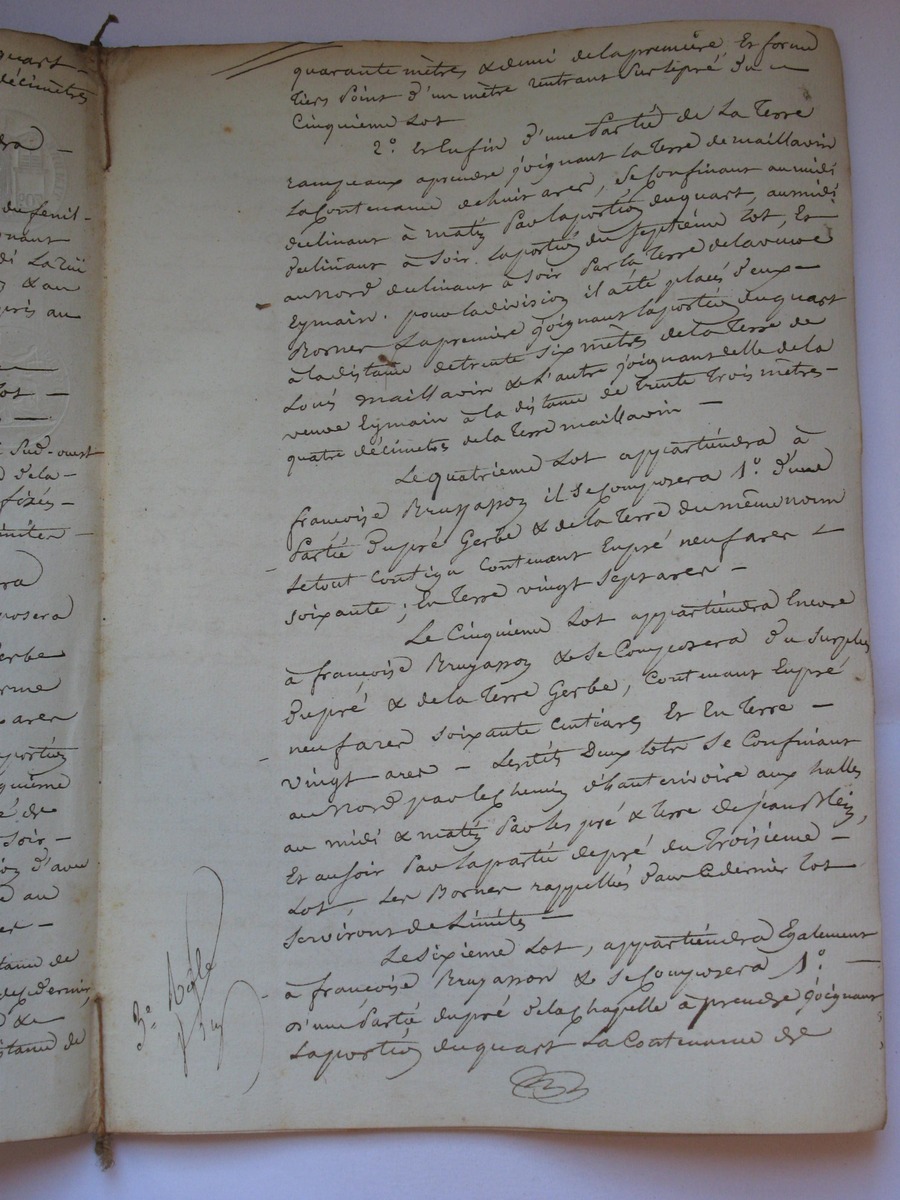 quart -
décimètres
dra -
du fenil-
gnant
di La rüe
& au
près au
Lot -
Sud-ouest
de la-
fixés-
limites -
ra
posera
erbe
orme
arer
portion
quième
é de
Soir -
d'avec
e au
er -
tance de
dernier
& de
stance de
quarante mètres & demi de la première, Et forme
tiers Point d'un mètre rentrant Sur lepré du -
Cinquième Lot
2° Et Enfin d'une Partie de La Terre
rampeaux aprendre joignant la Terre de maillavin
La Contenance de huit ares, Se Confinant au midi
declinant à matin Par la portion du quart, au midi
declinant à Soir. La portion du Septième Lot, Et
au Nord declinant à Soir Par la Terre de la veuve
Eymain. pour la division il a été placés deux -
Bornes La première joignant la portion du quart
à la distance de trente Six mètres de la Terre de
Louis maillavin & L'autre joignant celle de la
veuve Eymain à la distance de trente trois mètres -
quatre décimètres de la Terre maillavin -
Le quatrieme Lot appartiendra à
françoise Bruyasson il Se Composera 1° d'une
Partie du pré Gerbe & de la Terre du même nom
Le tout Contigu Contenant En pré neuf ares -
soixante ; En Terre vingt Sept ares -
Le Cinquième Lot appartiendra Encore
à françoise Bruyasson & Se Composera du Surplus
du pré & de la Terre Gerbe, Contenant En pré
neuf ares soixante Centiares Et En Terre -
vingt ares - Lesdits Deux lots Se Confinant
au Nord par le Chemin d'hauterivoire aux halles
au midi & matin Par les pré & terre de jean Blein,
Et au Soir Par la partie de pré du Troisième -
Lot, Les Bornes rappellés dans Ce dernier Lot
Serviront de Limites -
Le Sixieme Lot, appartiendra Egalement
à françoise Bruyasson & Se Composera 1° -
D'une Partie du pré de la Chapelle à prendre joignant
La portion du quart La Contenance de
3e Rôle